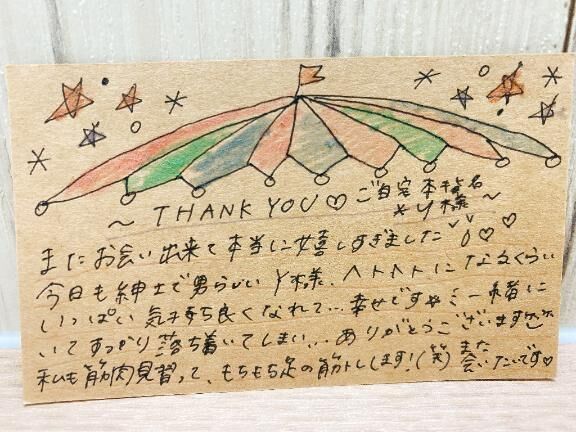 ~ THANK YOU♡ ご自宅本指名
*Y様 ~
またお会い出来て本当に嬉しすぎました♡♡
今日も紳士で男らしいY様、ヘトヘトになるくらい
いっぱい気持ち良くなれて…幸せです 一緒に
いてすっかり落ち着いてしまい…ありがとうございます
私も筋肉見習って、もちもち足の筋トレします!(笑) また
会いたいです♡